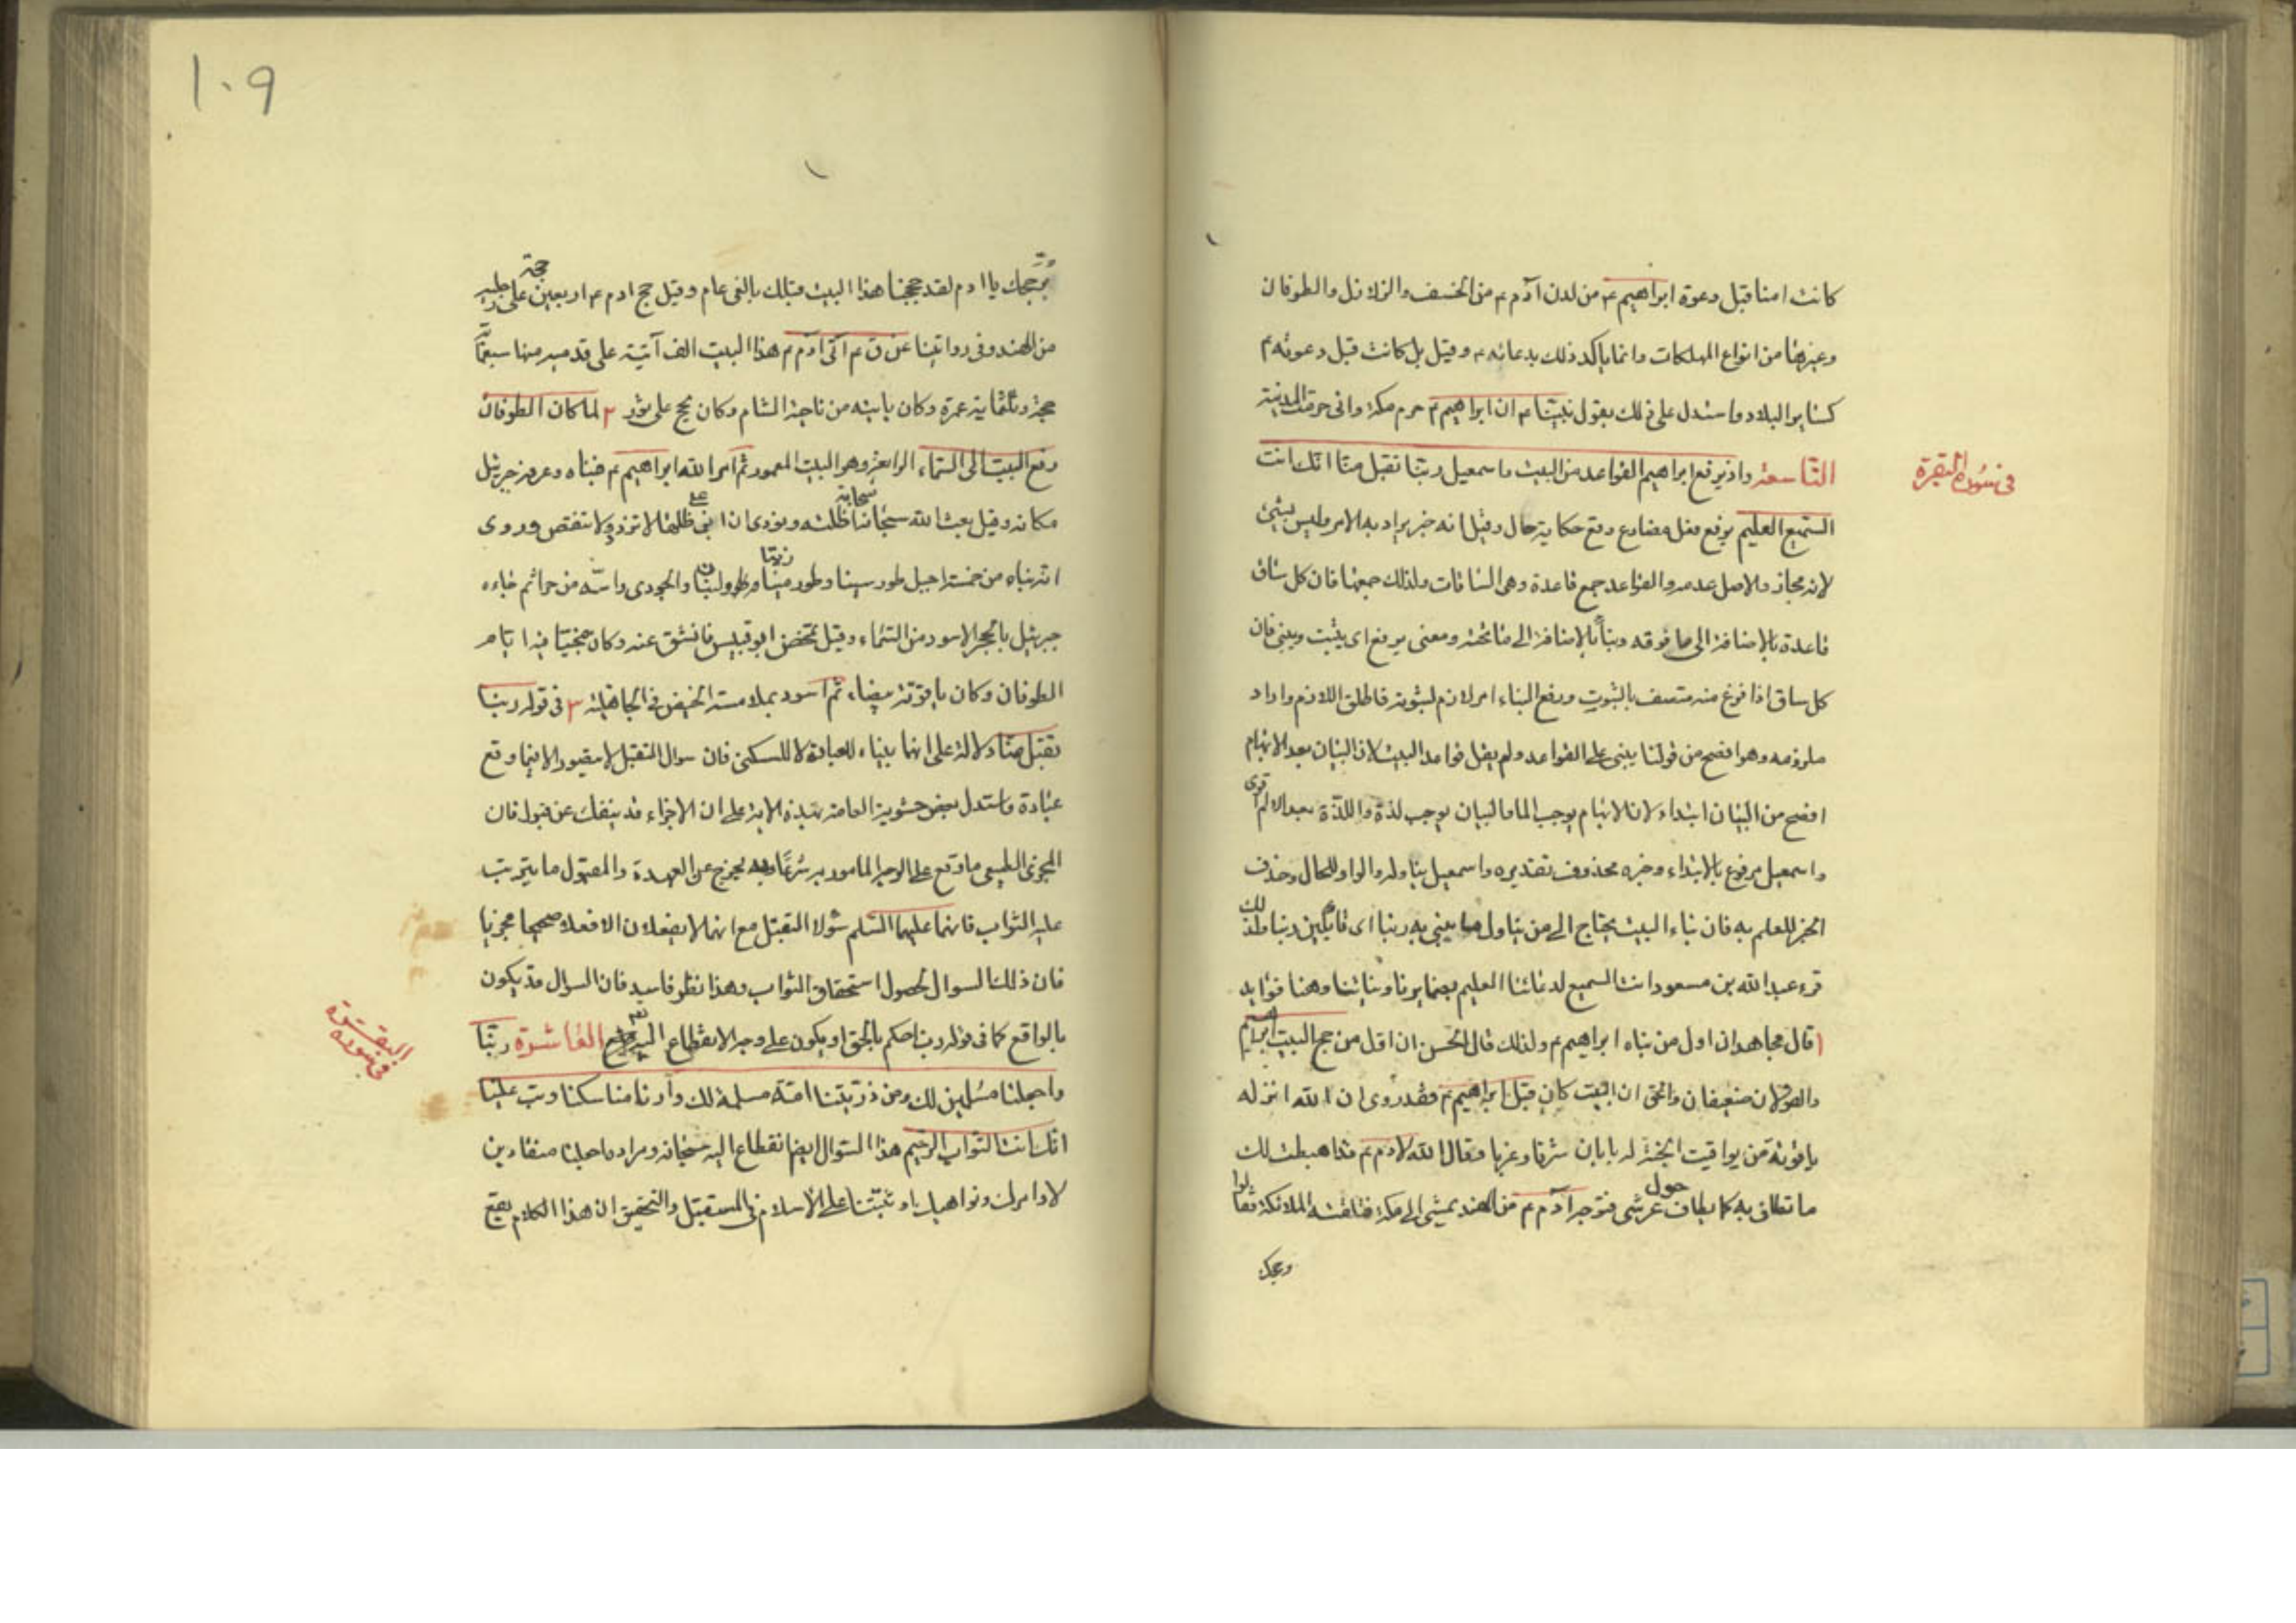 كانت امنا قبل دعوة ابراهيم ع من لدن آدم ع من الخسف والزلازل والطوفان
وغيرها من انواع المهلكات وانما تاكد ذلك بدعائه ع وقيل بل كانت قبل دعوته ع
كساير البلاد واستدل على ذلك بقول نبينا ع ان ابراهيم ع حرم مكة وانى حرمت المدينة
التاسعة واذ يرفع ابراهيم القواعد من البيت واسمعيل ربنا تقبل منا انك انت
في سورة البقرة
السميع العليم يرفع فعل مضارع وقع حكاية حال وقيل انه خبر يراد به الامر وليس بشئ
لانه مجاز والاصل عدمه والقواعد جمع قاعدة وهى السافات ولذلك جمعها فان كل ساف
قاعدة بالاضافة الى ما فوقه وبناء بالاضافة الى ما تحته ومعنى يرفع اى يثبت ويبنى فان
كل ساق اذا فرغ منه متصف بالثبوت ورفع البناء امر لازم لثبوته فاطلق اللازم واراد
ملزومه وهو افصح من قولنا يبنى على القواعد ولم يقل قواعد البيت لان البيان بعد الابهام
افصح من البيان ابتداء ولان الابهام يوجب الما والبيان يوجب لذة واللذة بعد الالم اقوى
واسمعيل مرفوع بالابتداء وخبره محذوف تقديره واسمعيل يناوله والواو للحال وحذف
الخبر للعلم به فان بناء البيت يحتاج الى من يناول ما يبنى به ربنا اى قايلين ربنا ولذلك
قرء عبد الله بن مسعود انت السميع لدعائنا العليم بضمايرنا ونياتنا وهنا فوايد
١ قال مجاهد ان اول من بناه ابراهيم ع ولذلك قال الحسن ان اول من حج البيت ابراهيم
والقولان ضعيفان والحق ان البيت كان قبل ابراهيم ع فقد روى ان الله انزله
ياقوتة من يواقيت الجنة له بابان شرقا وغربا وقال الله لادم ع قد اهبطت لك
ما تطاف به كما يطاف حول عرشى فتوجه آدم ع من الهند يمشى الى مكة فتلقته الملائكة فقالوا
١٠٩
بر حجك يا ادم لقد حججنا هذا البيت قبلك بالفى عام وقيل حج ادم ع اربعين حجة على رجليه
من الهند وفى رواتينا عن ق ع اتى آدم ع هذا البيت الف آتية على قدميه منها سبعمائة
حجة وثلثماية عمرة وكان ياتيه من ناحية الشام وكان يحج على ثور ٢ لما كان الطوفان
رفع البيت الى السماء الرابعة وهو البيت المعمور ثم امر الله ابراهيم ع فبناه وعرفه جبرئيل
مكانه وقيل بعث الله سبحانه سحابة ظلته ونودى ان ابن على ظلها لا تزد ولا تنقص وروى
انه بناه من خمسة اجبل طور سينا وطور زيتا ولبنان والجودى واسه من حرا ثم جاءه
جبرئيل بالحجر الاسود من السماء وقيل تمخض ابو قبيس فانشق عنه وكان مخبيا فيه ايام
الطوفان وكان ياقوتة بيضاء ثم اسود بملامسة الحيض في الجاهلية ٣ فى قوله ربنا
تقبل منا دلالة على انهما بنياه للعبادة لا للسكنى فان سوال التقبل لا يتصور الا فيما وقع
عبادة واستدل بعض حشوية العامة بهذه الاية على ان الاجزاء قد ينفك عن القبول فان
المجزى ما وقع على الوجه المامور به شرعا وبه يخرج عن العهدة والمقبول ما يترتب
عليه الثواب فانهما عليهما السلم سئلا التقبل مع انهما لا يفعلان الا فعلا صحيحا مجزيا
فان ذلك السوال لحصول استحقاق الثواب وهذا نظر فاسد فان السوال قد يكون
بالواقع كما فى قوله رب احكم بالحق او يكون على وجه الانقطاع اليه تعالى العاشرة ربنا
في سورة البقرة
واجعلنا مسلمين لك ومن ذريتنا امة مسلمة لك وارنا مناسكنا وتب علينا
انك انت التواب الرحيم هذا السوال ايضا انقطاع اليه سبحانه ومراده اجعلنا منقادين
لاوامرك ونواهيك او ثبتنا على الاسلام في المستقبل والتحقيق ان هذا الكلام يقع